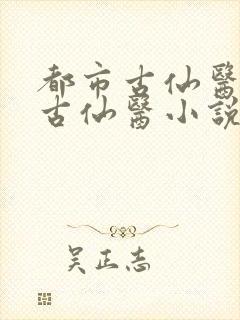 都市古仙醫
古仙醫小説
吴正志